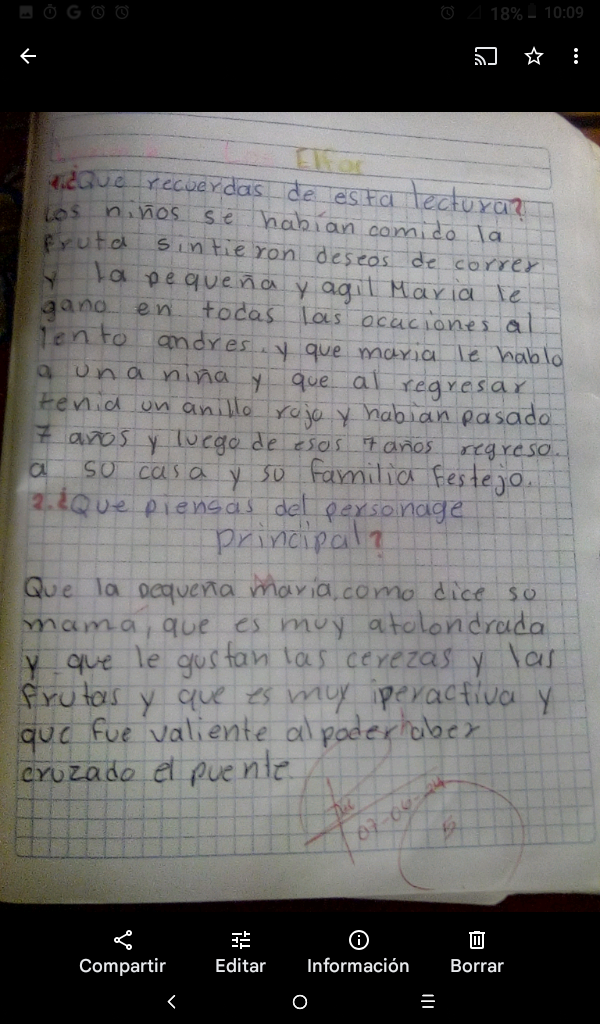 18% 10:09
Elfos
1.¿Que recuerdas de esta lectura?
Los niños se habían comido la
fruta sintieron deseos de correr
y la pequeña y agil Maria le
gano en todas las ocaciones al
lento andres. y que maria le hablo
a una niña y que al regresar
tenia un anillo rojo y habían pasado
7 años y luego de esos 7 años regreso.
a su casa y su familia festejo.
2.¿Que piensas del personage
principal?
Que la pequeña Maria, como dice su
mama, que es muy atolondrada
y que le gustan las cerezas y las
frutas y que es muy iperactiva y
que fue valiente al poder haber
cruzado el puente.
07-06-24
Compartir Editar Información Borrar